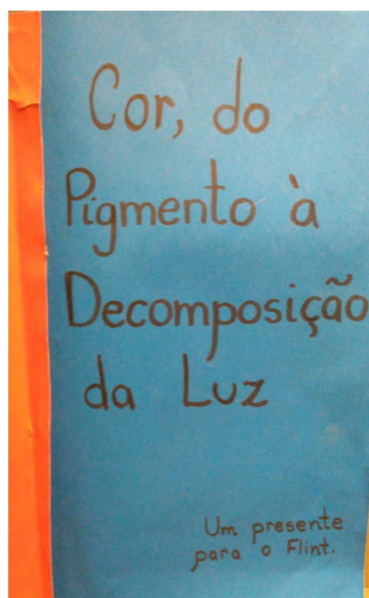 Cor, do
Pigmento à
Decomposição
da Luz
Um presente
para o Flint.